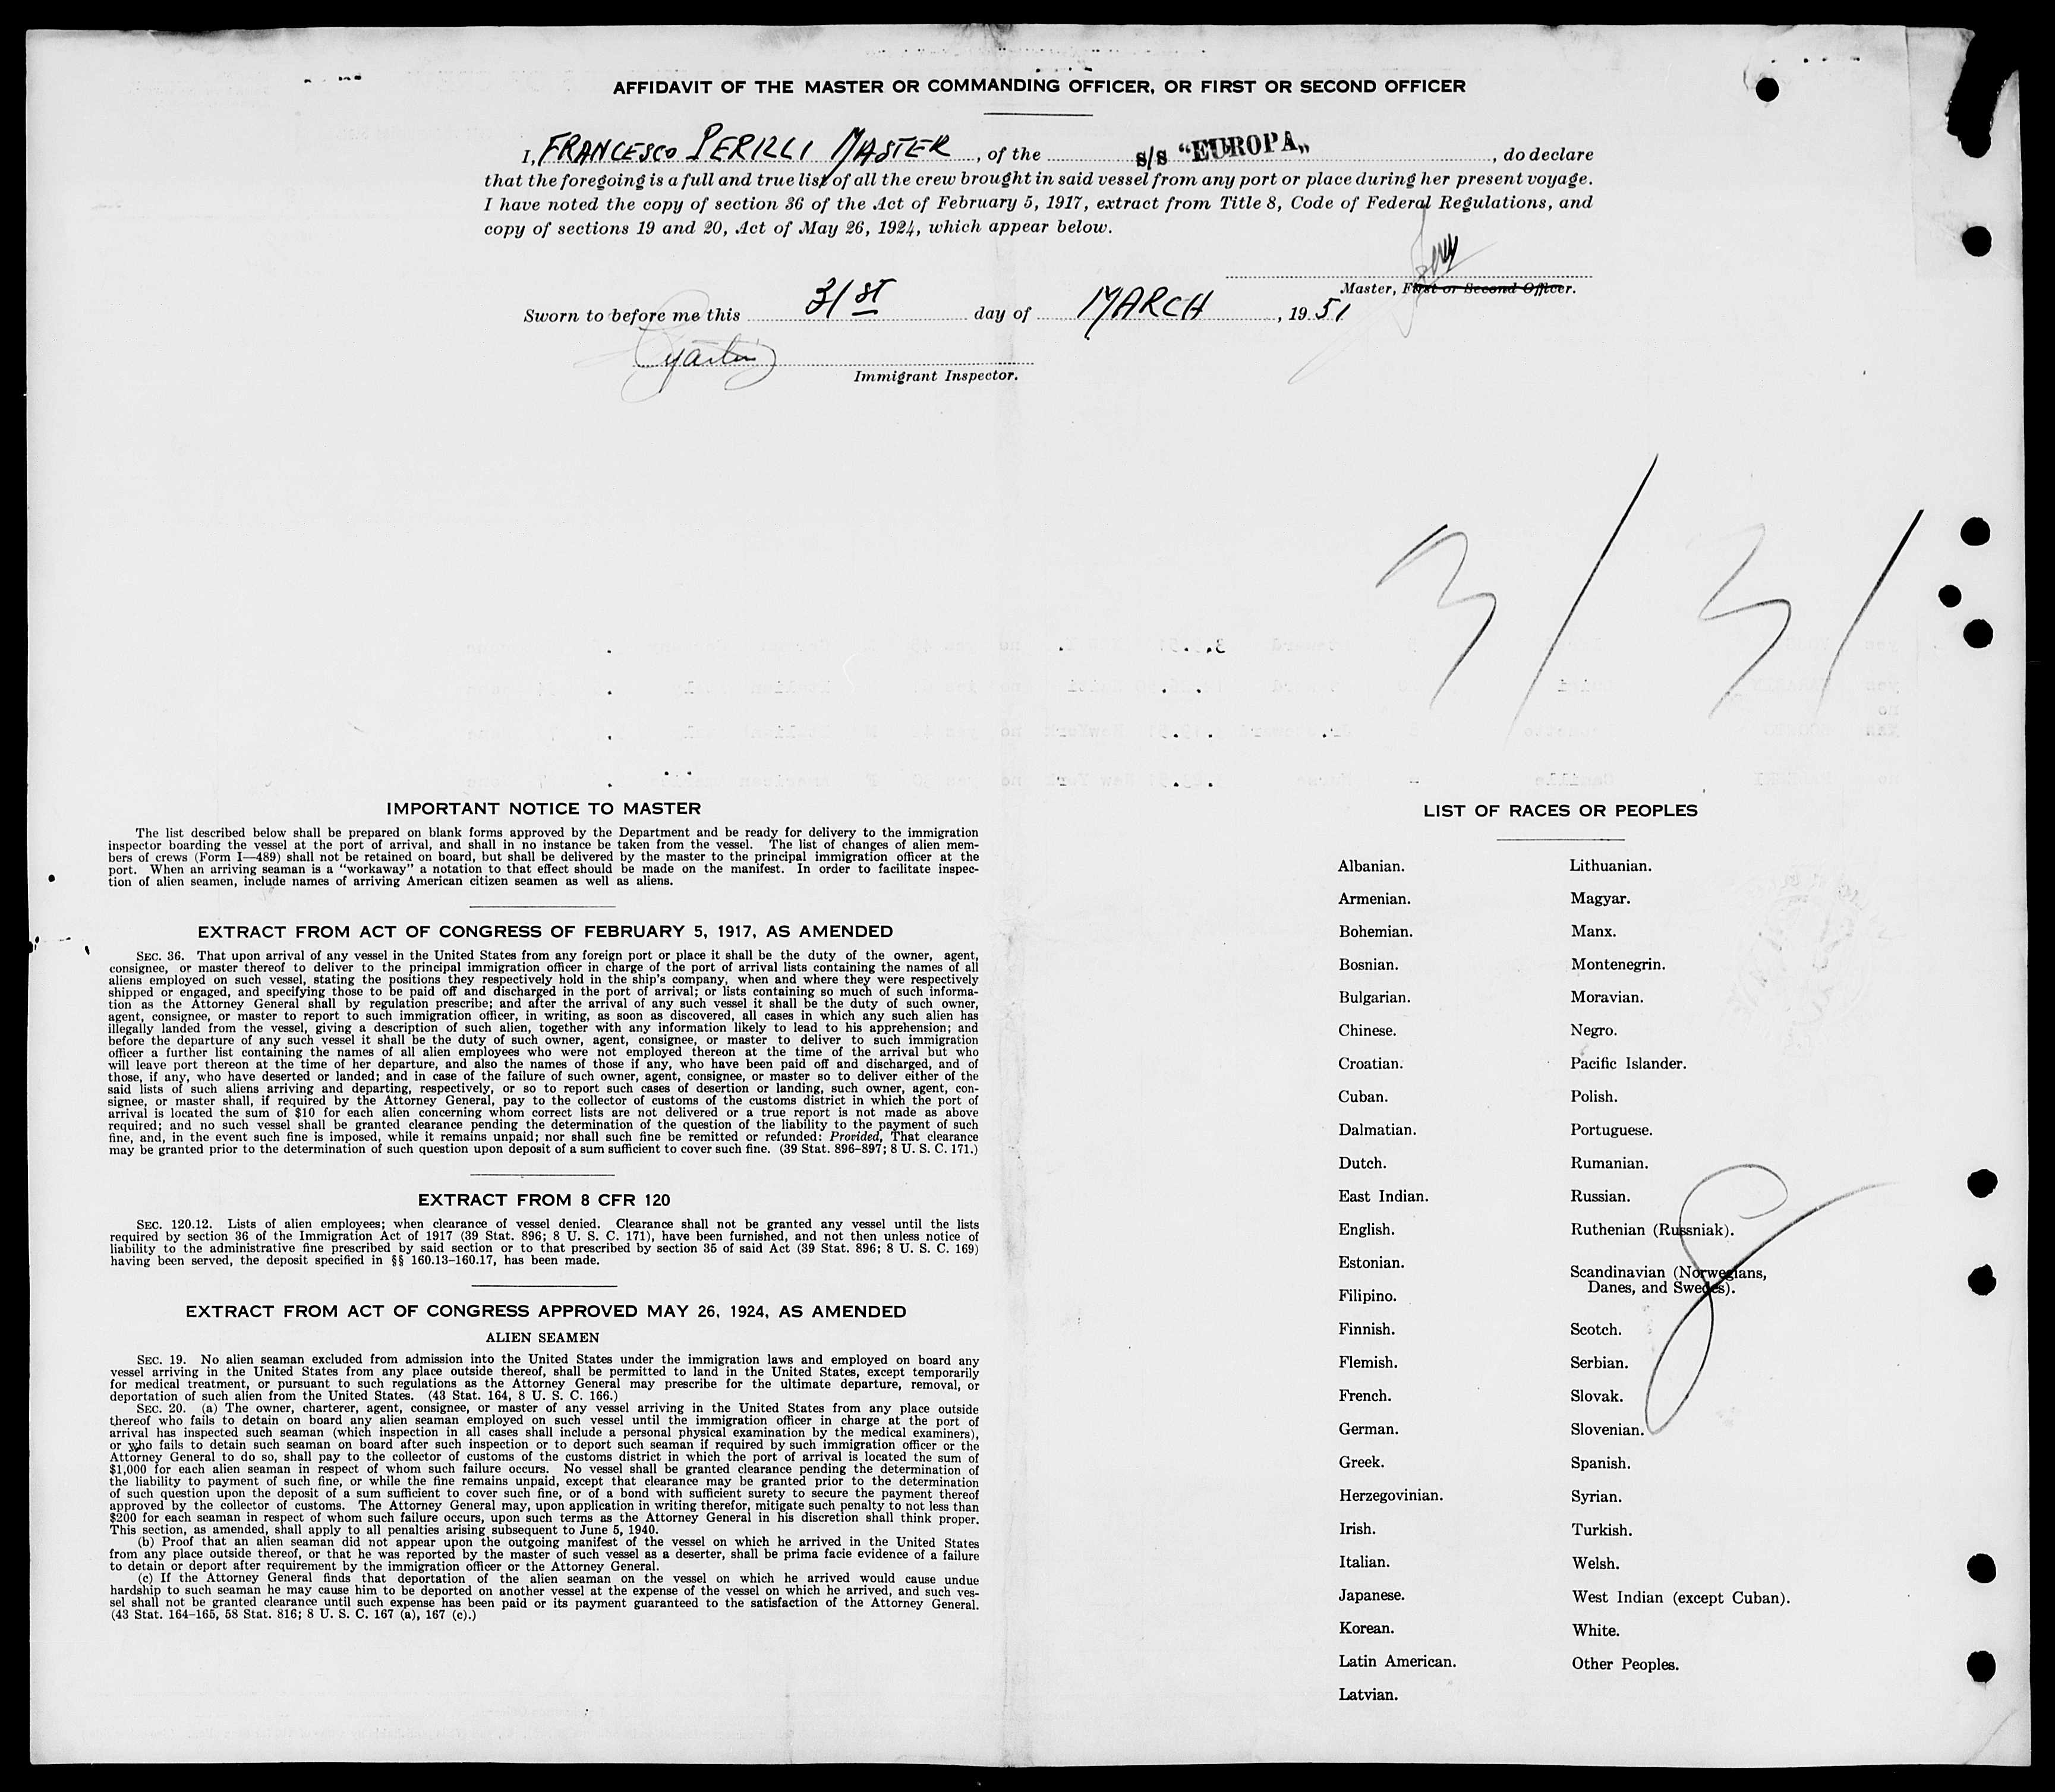 AFFIDAVIT OF THE MASTER OR COMMANDING OFFICER, OR FIRST OR SECOND OFFICER
I, FRANCESCO PERILLI MASTER, of the s/s "EUROPA„, do declare
that the foregoing is a full and true list of all the crew brought in said vessel from any port or place during her present voyage.
I have noted the copy of section 36 of the Act of February 5, 1917, extract from Title 8, Code of Federal Regulations, and
copy of sections 19 and 20, Act of May 26, 1924, which appear below.
Master, First or Second Officer.
Sworn to before me this 31ST day of MARCH, 1951
Immigrant Inspector.
3/31
IMPORTANT NOTICE TO MASTER
The list described below shall be prepared on blank forms approved by the Department and be ready for delivery to the immigration
inspector boarding the vessel at the port of arrival, and shall in no instance be taken from the vessel. The list of changes of alien mem-
bers of crews (Form I—489) shall not be retained on board, but shall be delivered by the master to the principal immigration officer at the
port. When an arriving seaman is a "workaway" a notation to that effect should be made on the manifest. In order to facilitate inspec-
tion of alien seamen, include names of arriving American citizen seamen as well as aliens.
EXTRACT FROM ACT OF CONGRESS OF FEBRUARY 5, 1917, AS AMENDED
SEC. 36. That upon arrival of any vessel in the United States from any foreign port or place it shall be the duty of the owner, agent,
consignee, or master thereof to deliver to the principal immigration officer in charge of the port of arrival lists containing the names of all
aliens employed on such vessel, stating the positions they respectively hold in the ship's company, when and where they were respectively
shipped or engaged, and specifying those to be paid off and discharged in the port of arrival; or lists containing so much of such informa-
tion as the Attorney General shall by regulation prescribe; and after the arrival of any such vessel it shall be the duty of such owner,
agent, consignee, or master to report to such immigration officer, in writing, as soon as discovered, all cases in which any such alien has
illegally landed from the vessel, giving a description of such alien, together with any information likely to lead to his apprehension; and
before the departure of any such vessel it shall be the duty of such owner, agent, consignee, or master to deliver to such immigration
officer a further list containing the names of all alien employees who were not employed thereon at the time of the arrival but who
will leave port thereon at the time of her departure, and also the names of those if any, who have been paid off and discharged, and of
those, if any, who have deserted or landed; and in case of the failure of such owner, agent, consignee, or master so to deliver either of the
said lists of such aliens arriving and departing, respectively, or so to report such cases of desertion or landing, such owner, agent, con-
signee, or master shall, if required by the Attorney General, pay to the collector of customs of the customs district in which the port of
arrival is located the sum of $10 for each alien concerning whom correct lists are not delivered or a true report is not made as above
required; and no such vessel shall be granted clearance pending the determination of the question of the liability to the payment of such
fine, and, in the event such fine is imposed, while it remains unpaid; nor shall such fine be remitted or refunded: Provided, That clearance
may be granted prior to the determination of such question upon deposit of a sum sufficient to cover such fine. (39 Stat. 896–897; 8 U. S. C. 171.)
EXTRACT FROM 8 CFR 120
SEC. 120.12. Lists of alien employees; when clearance of vessel denied. Clearance shall not be granted any vessel until the lists
required by section 36 of the Immigration Act of 1917 (39 Stat. 896; 8 U. S. C. 171), have been furnished, and not then unless notice of
liability to the administrative fine prescribed by said section or to that prescribed by section 35 of said Act (39 Stat. 896; 8 U. S. C. 169)
having been served, the deposit specified in §§ 160.13–160.17, has been made.
EXTRACT FROM ACT OF CONGRESS APPROVED MAY 26, 1924, AS AMENDED
ALIEN SEAMEN
SEC. 19. No alien seaman excluded from admission into the United States under the immigration laws and employed on board any
vessel arriving in the United States from any place outside thereof, shall be permitted to land in the United States, except temporarily
for medical treatment, or pursuant to such regulations as the Attorney General may prescribe for the ultimate departure, removal, or
deportation of such alien from the United States. (43 Stat. 164, 8 U. S. C. 166.)
SEC. 20. (a) The owner, charterer, agent, consignee, or master of any vessel arriving in the United States from any place outside
thereof who fails to detain on board any alien seaman employed on such vessel until the immigration officer in charge at the port of
arrival has inspected such seaman (which inspection in all cases shall include a personal physical examination by the medical examiners),
or who fails to detain such seaman on board after such inspection or to deport such seaman if required by such immigration officer or the
Attorney General to do so, shall pay to the collector of customs of the customs district in which the port of arrival is located the sum of
$1,000 for each alien seaman in respect of whom such failure occurs. No vessel shall be granted clearance pending the determination of
the liability to payment of such fine, or while the fine remains unpaid, except that clearance may be granted prior to the determination
of such question upon the deposit of a sum sufficient to cover such fine, or of a bond with sufficient surety to secure the payment thereof
approved by the collector of customs. The Attorney General may, upon application in writing therefor, mitigate such penalty to not less than
$200 for each seaman in respect of whom such failure occurs, upon such terms as the Attorney General in his discretion shall think proper.
This section, as amended, shall apply to all penalties arising subsequent to June 5, 1940.
(b) Proof that an alien seaman did not appear upon the outgoing manifest of the vessel on which he arrived in the United States
from any place outside thereof, or that he was reported by the master of such vessel as a deserter, shall be prima facie evidence of a failure
to detain or deport after requirement by the immigration officer or the Attorney General.
(c) If the Attorney General finds that deportation of the alien seaman on the vessel on which he arrived would cause undue
hardship to such seaman he may cause him to be deported on another vessel at the expense of the vessel on which he arrived, and such ves-
sel shall not be granted clearance until such expense has been paid or its payment guaranteed to the satisfaction of the Attorney General.
(43 Stat. 164–165, 58 Stat. 816; 8 U. S. C. 167 (a), 167 (c).)
LIST OF RACES OR PEOPLES
Albanian.
Armenian.
Bohemian.
Bosnian.
Bulgarian.
Chinese.
Croatian.
Cuban.
Dalmatian.
Dutch.
East Indian.
English.
Estonian.
Filipino.
Finnish.
Flemish.
French.
German.
Greek.
Herzegovinian.
Irish.
Italian.
Japanese.
Korean.
Latin American.
Latvian.
Lithuanian.
Magyar.
Manx.
Montenegrin.
Moravian.
Negro.
Pacific Islander.
Polish.
Portuguese.
Rumanian.
Russian.
Ruthenian (Russniak).
Scandinavian (Norwegians,
Danes, and Swedes).
Scotch.
Serbian.
Slovak.
Slovenian.
Spanish.
Syrian.
Turkish.
Welsh.
West Indian (except Cuban).
White.
Other Peoples.